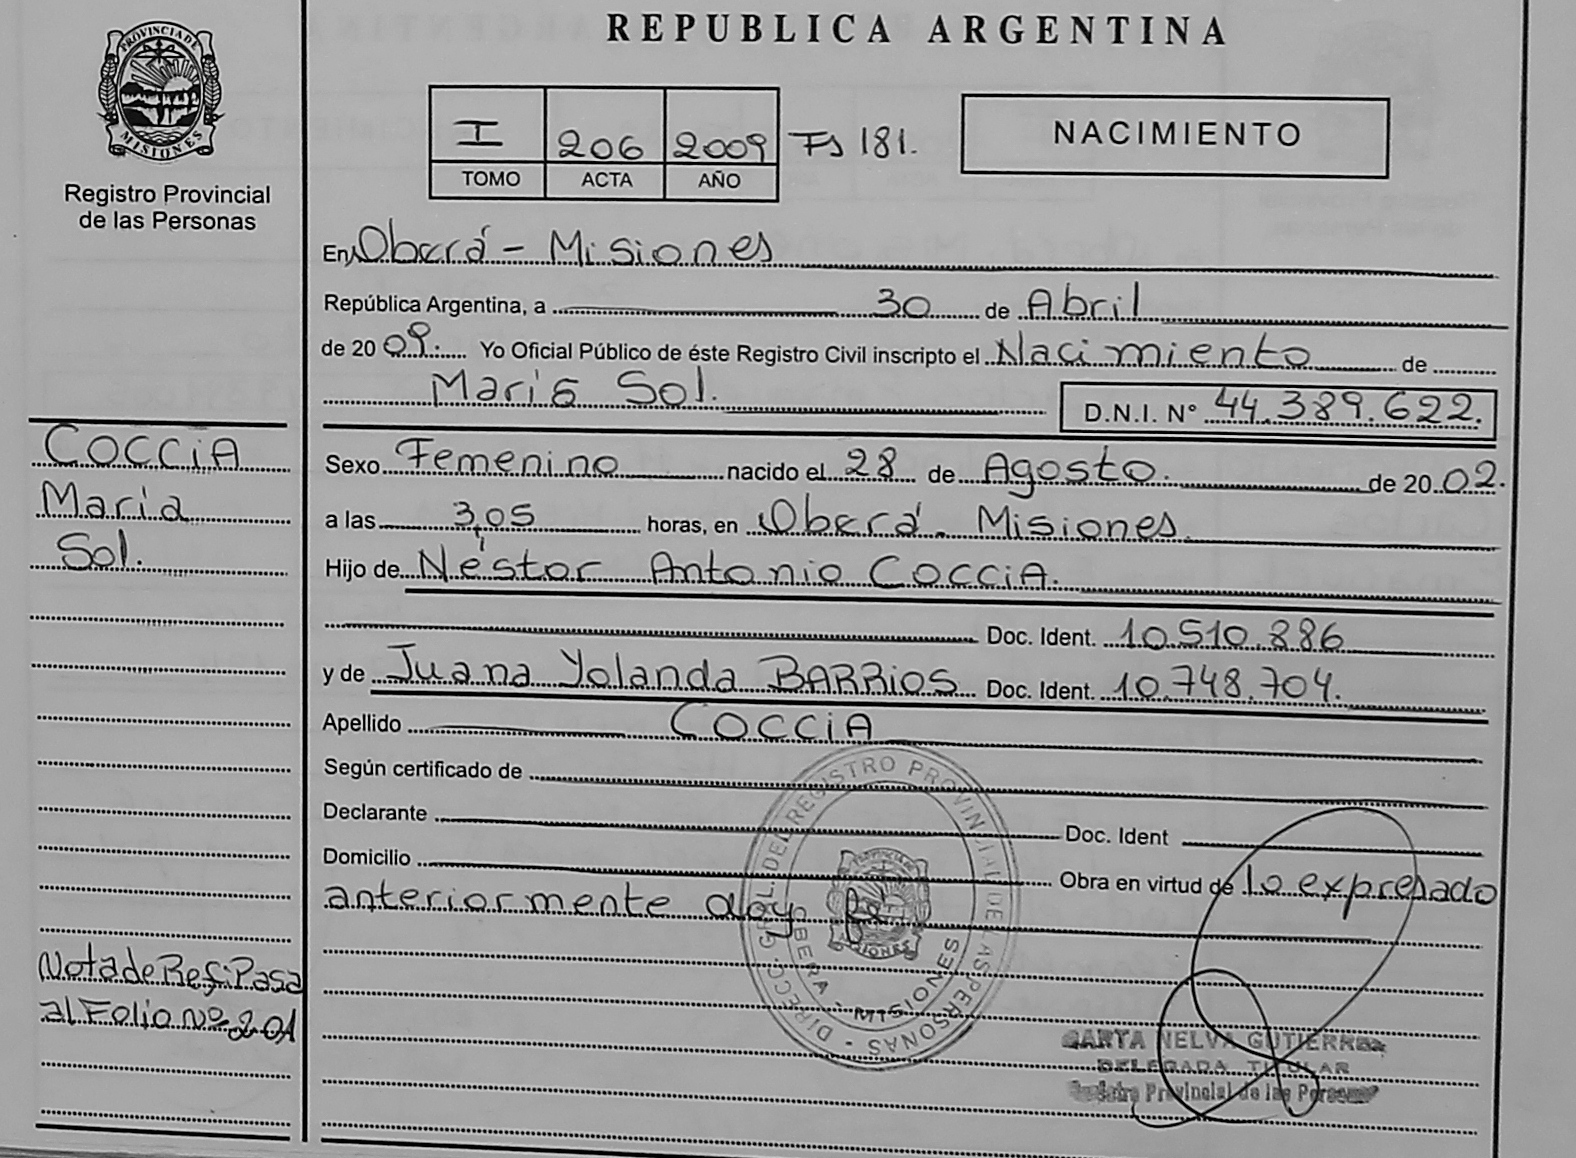 REPUBLICA ARGENTINA
PROVINCIA DE
MISIONES
Registro Provincial
de las Personas
I 206 2009 Fs 181.
TOMO ACTA AÑO
NACIMIENTO
En Oberá - Misiones
República Argentina, a 30 de Abril
de 20 09. Yo Oficial Público de éste Registro Civil inscripto el Nacimiento de
María Sol.
D.N.I. N° 44.389.622.
COCCiA
Maria
Sol.
Sexo Femenino nacido el 28 de Agosto. de 20 02.
a las 3,05 horas, en Oberá. Misiones.
Hijo de Néstor Antonio COCCiA.
Doc. Ident. 10.510.886
y de Juana Yolanda BARRiOS Doc. Ident. 10.748.704.
Apellido COCCiA
Según certificado de
Declarante Doc. Ident
Domicilio Obra en virtud de lo expresado
anteriormente doy fé.
Nota de Ref: Pasa
al Folio Nº 201
DIRECC. GRAL. DEL REGISTRO PROVINCIAL DE LAS PERSONAS
OBERA - MISIONES
NELVA GUTIERREZ
DELEGADA TITULAR
Registro Provincial de las Personas